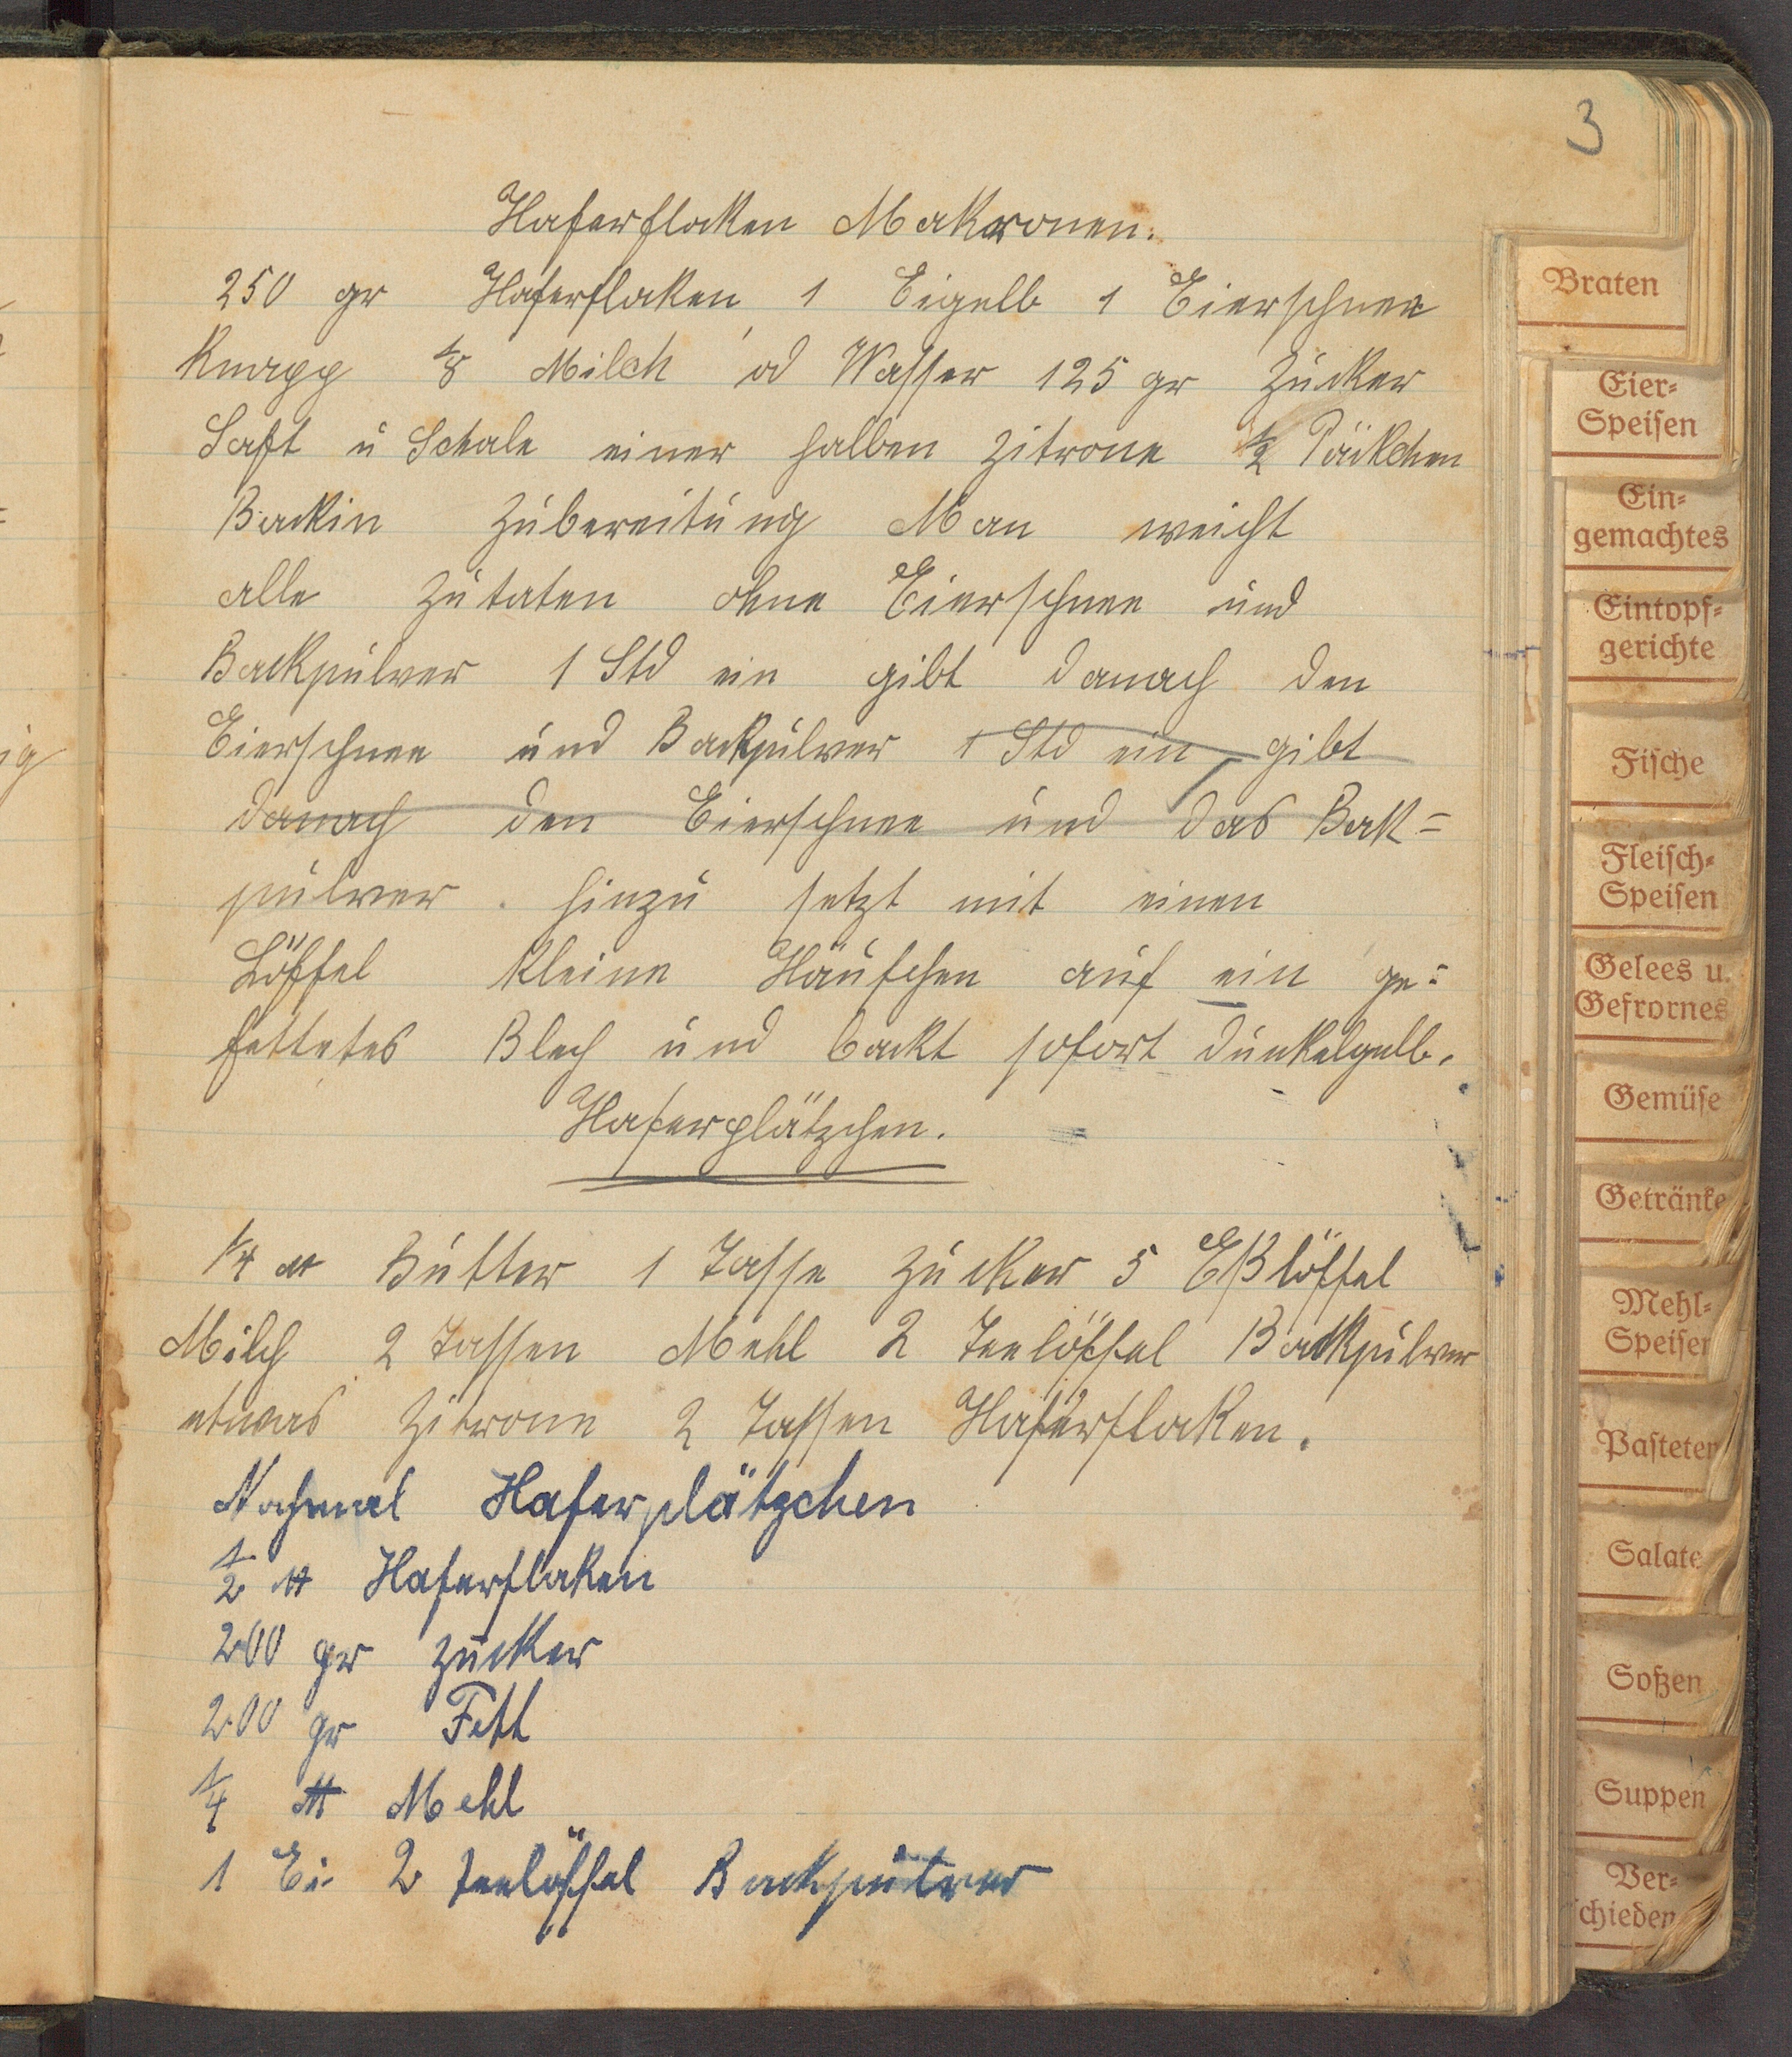 3
Haferflocken Makronen.
250 gr Haferflocken, 1 Eigelb 1 Eierschnee
Knapp 1/8 Milch od Wasser 125 gr Zucker
Saft u Schale einer halben Zitrone 1/2 Päckchen
Backin Zubereitung Man weicht
alle Zutaten ohne Eierschnee und
Backpulver 1 Std ein gibt danach den
Eierschnee und Backpulver 1 Std ein, gibt
danach den Eierschnee und das Back=
pulver. hinzu setzt mit einen
Löffel kleine Häufchen auf ein ge=
fettetes Blech und backt sofort dunkelgelb.
Haferplätzchen.
1/4 ℔ Butter 1 Tasse Zucker 5 Eßlöffel
Milch 2 Tassen Mehl 2 Teelöffel Backpulver
etwas Zitrone 2 Tassen Haferflocken.
Nochmal Haferplätzchen
1/2 ℔ Haferflocken
200 gr Zucker
200 gr Fett
1/4 ℔ Mehl
1 Ei 2 Teelöffel Backpulver
Braten
Eier=
Speisen
Ein=
gemachtes
Eintopf=
gerichte
Fische
Fleisch=
Speisen
Gelees u.
Gefrornes
Gemüse
Getränke
Mehl=
Speisen
Pasteten
Salate
Soßen
Suppen
Ver=
schieden
ig